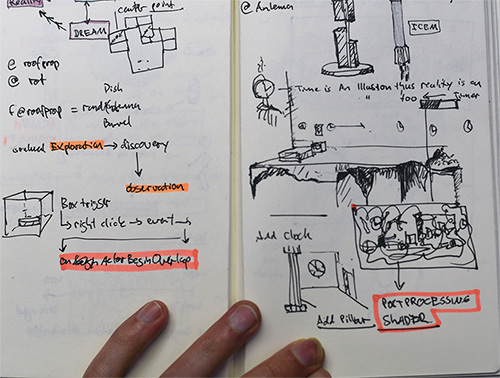 Reality
center point
DREAM
@ roofprop
@ rot
Dish
f@roofprop = rand Antenna
Barrel
Exploration → discovery
observation
Box trigger
→ right click → event →
Actor Begin Overlap
@ Antenna
ICBM
Time is An Illusion thus reality is an
" too
Timer
Add Clock
Add Pillar
POSTPROCESSING
SHADER